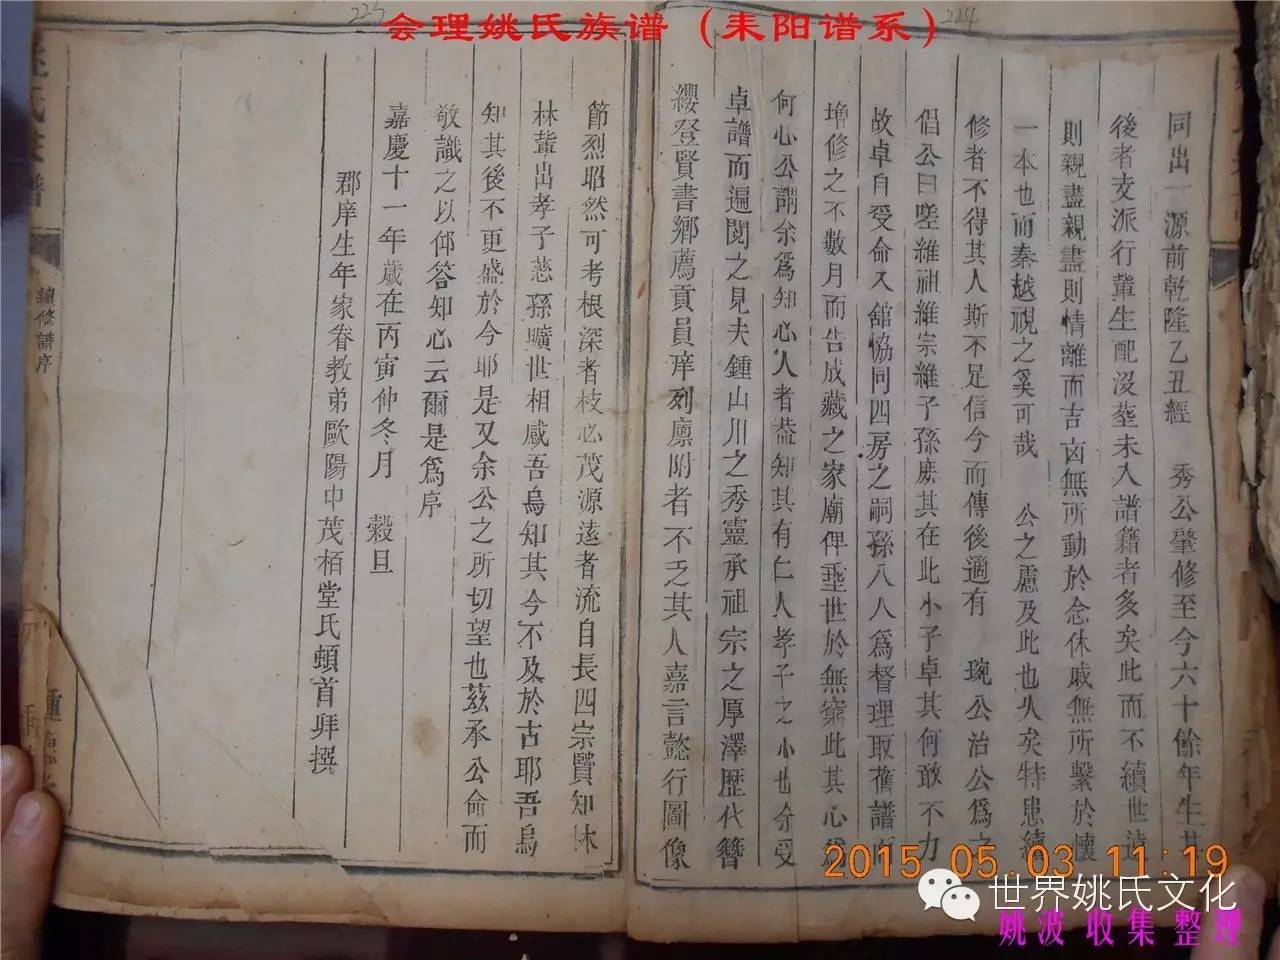 会理姚氏族谱（耒阳谱系）
225
224
同出一源前乾隆乙丑經 秀公肇修至今六十餘年生其
後者支派行輩生配沒塟未入譜籍者多矣此而不續世遠
則親盡親盡則情離而吉凶無所動於念休戚無所繫於懷
一本也而秦越視之奚可哉 公之慮及此也久矣特患續
修者不得其人斯不足信今而傳後適有 琬公治公爲之
倡公曰嗟維祖維宗維子孫庶其在此小子卓其何敢不力
故卓自受命入舘恊同四房之嗣孫八人爲督理取舊譜
增修之不數月而告成藏之家廟俾垂世於無窮此其心爲
何心公謂余爲知心人者葢知其有仁人孝子之心也余受
卓譜而遍閱之見夫鍾山川之秀靈承祖宗之厚澤歷代簪
纓登賢書鄉薦貢員庠列廪附者不乏其人嘉言懿行圖像
節烈昭然可考根深者枝必茂源遠者流自長四宗賢知休
林輩出孝子慈孫曠世相感吾烏知其今不及於古耶吾烏
知其後不更盛於今耶是又余公之所切望也茲承公命而
敬識之以仰答知心云爾是爲序
嘉慶十一年歲在丙寅仲冬月 穀旦
郡庠生年家眷教弟歐陽中茂栢堂氏頓首拜撰
氏 譜
續修譜序
2015.05.03 11:19
世界姚氏文化
姚波 收集整理